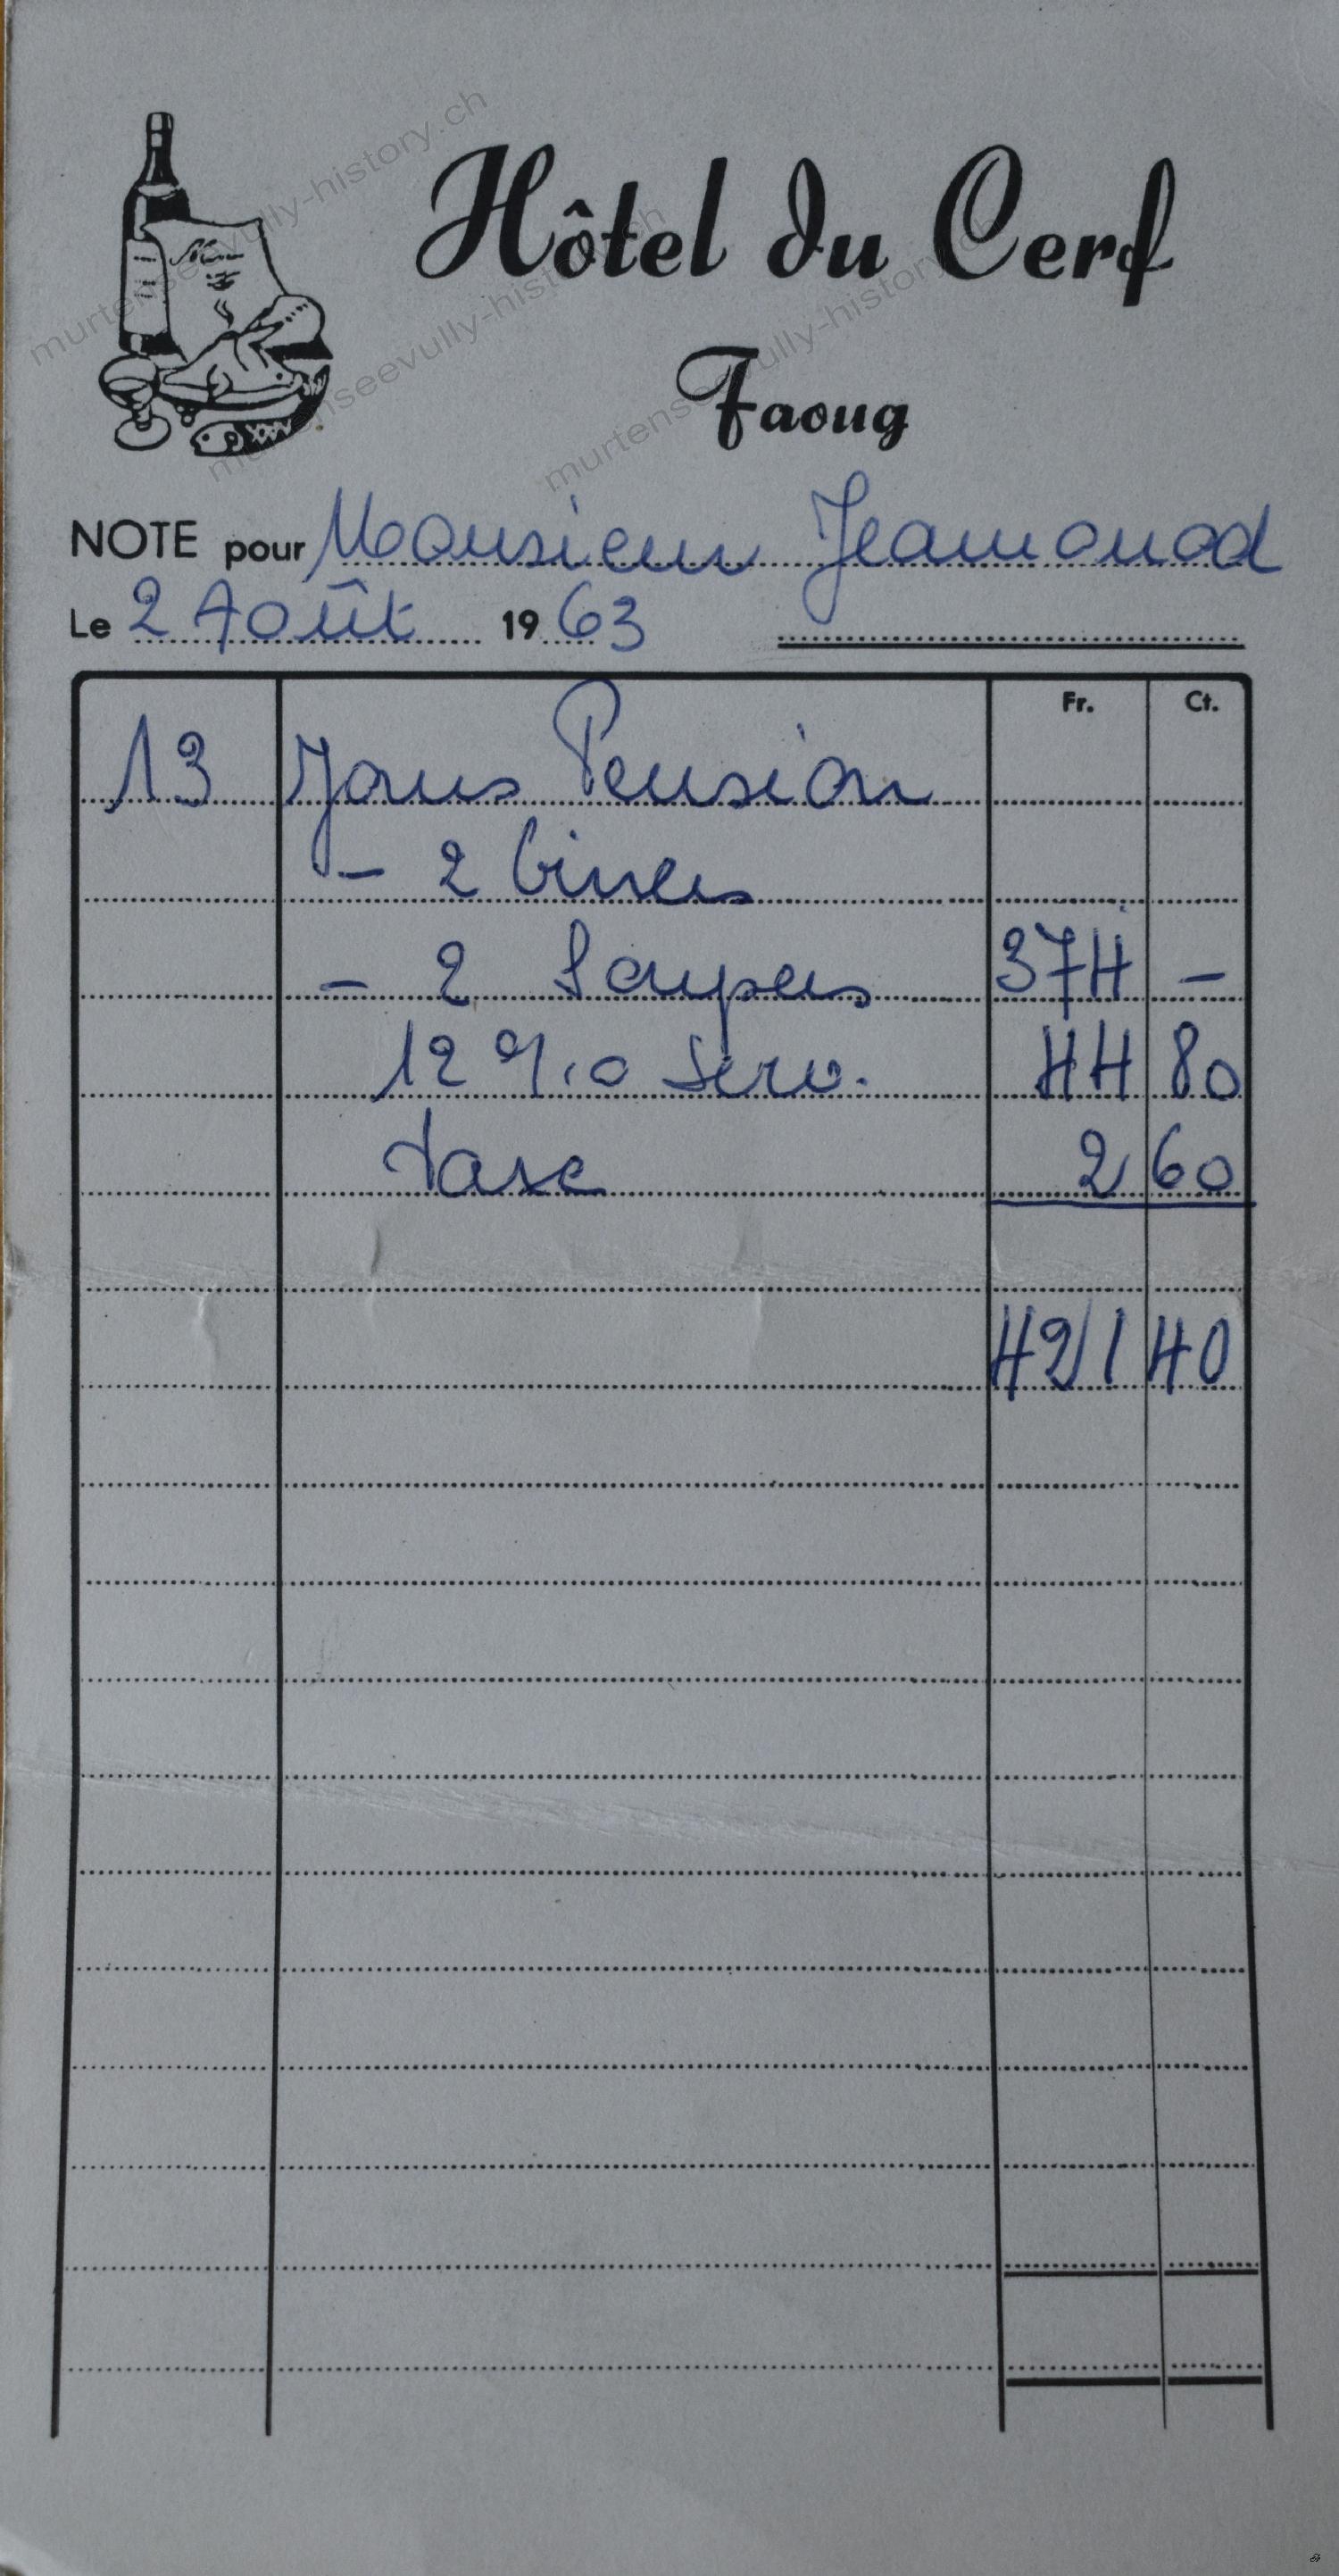 Hôtel du Cerf
Faoug
NOTE pour Monsieur Jeamonod
Le 2 Août 1963
Fr. Ct.
13 Jours Pension
- 2 Diners
- 2 Soupers 374 -
12 % Serv. 44 80
taxe 2 60
421 40
murtenseevully-history.ch
murtenseevully-history.ch
murtenseevully-history.ch